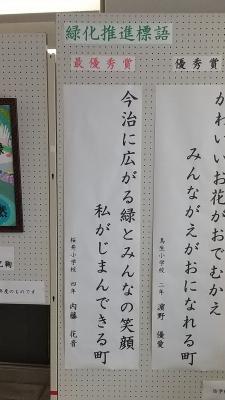 緑化推進標語
優秀賞
かわいいお花がおでむかえ
みんながえがおになれる町
鳥生小学校 二年 濵野 優愛
最優秀賞
今治に広がる緑とみんなの笑顔
私がじまんできる町
桜井小学校 四年 内藤 花音